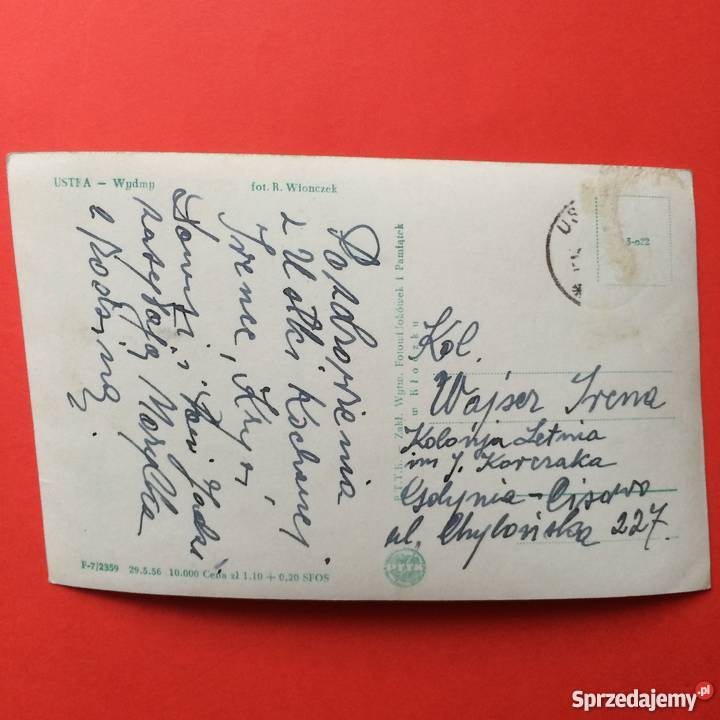 USTKA — Wydmy
fot. R. Wionczek
Pozdrowienia
z Ustki Kochanej
Irence, Krysi,
i Pani Jadzi
zasyłają Marylka
z Rodziną
P.T.T.K. Zakł. Wytw. Fotowidokówek i Pamiątek
w Kłodzku
S-o22
Kol.
Wajser Irena
Kolonja Letnia
im J. Korczaka
Gdynia-Cisowa
ul. Chylońska 227.
F-7/2359 29.5.56 10.000 Cena zł 1.10 + 0,20 SFOS
PTTK
Sprzedajemy.pl